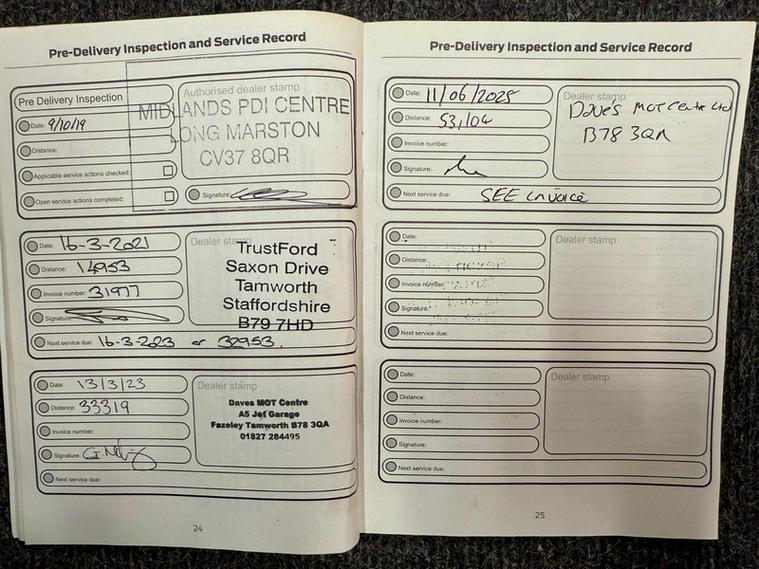 Pre-Delivery Inspection and Service Record
Pre Delivery Inspection
Authorised dealer stamp
MIDLANDS PDI CENTRE
LONG MARSTON
CV37 8QR
Date: 9/10/19
Distance:
Applicable service actions checked:
Open service actions completed:
Signature:
Date: 16-3-2021
Distance: 14953
Invoice number: 31977
Signature:
Next service due: 16-3-2023 or 32953.
Dealer stamp
TrustFord
Saxon Drive
Tamworth
Staffordshire
B79 7HD
Date: 13/3/23
Distance: 33319
Invoice number:
Signature:
Next service due:
Dealer stamp
Daves MOT Centre
A5 Jet Garage
Fazeley Tamworth B78 3QA
01827 284495
24
Pre-Delivery Inspection and Service Record
Date: 11/06/2025
Distance: 53,104
Invoice number:
Signature:
Next service due: SEE invoice
Dealer stamp
Dave's MOT Centre Ltd
B78 3QA
Date:
Distance:
Invoice number:
Signature:
Next service due:
Dealer stamp
Date:
Distance:
Invoice number:
Signature:
Next service due:
Dealer stamp
25